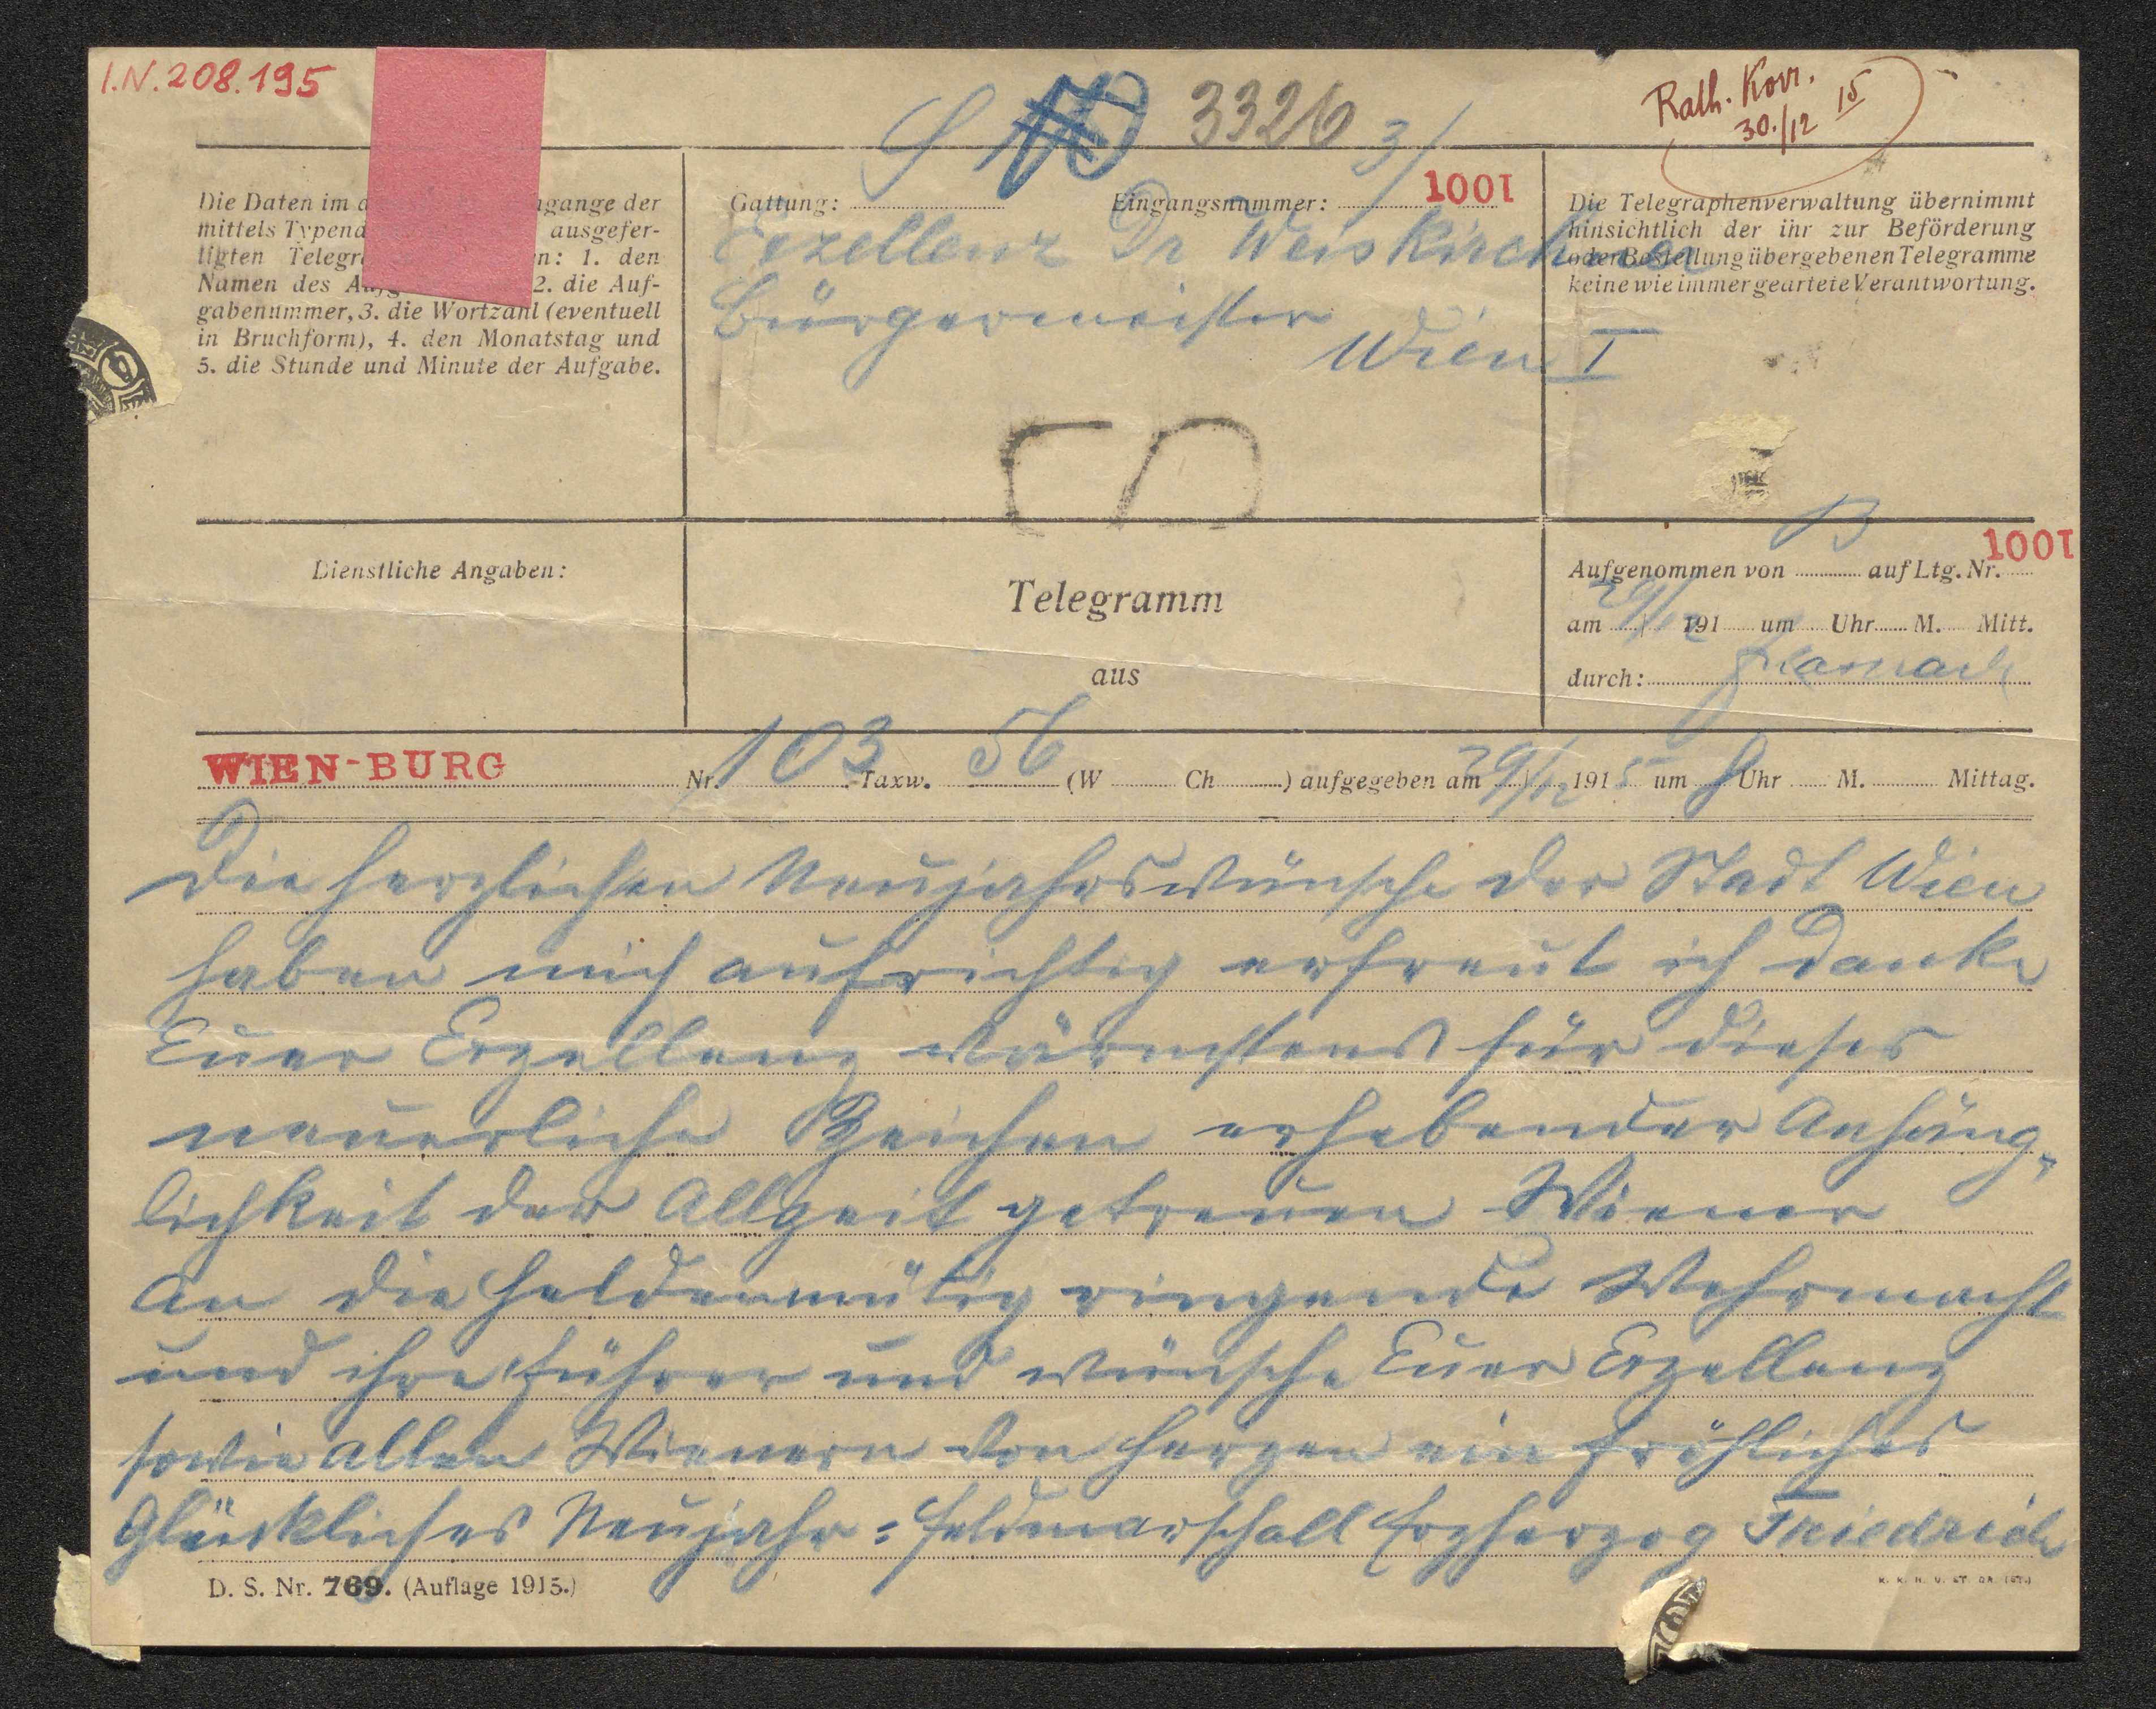 I.N. 208.195
Rath. Korr.
30./12 15
S 3326 3/
Die Daten im d... ...ngange der
mittels Typend... ausgefer-
tigten Telegr... ...en: 1. den
Namen des Aufg... 2. die Auf-
gabenummer, 3. die Wortzahl (eventuell
in Bruchform), 4. den Monatstag und
5. die Stunde und Minute der Aufgabe.
Gattung: Eingangsnummer: 1001
Exzellenz Dr Weiskirchner
Bürgermeister
Wien I
Die Telegraphenverwaltung übernimmt
hinsichtlich der ihr zur Beförderung
oder Bestellung übergebenen Telegramme
keine wie immer geartete Verantwortung.
Dienstliche Angaben:
Telegramm
aus
Aufgenommen von B auf Ltg. Nr. 1001
am 29/12 191 um Uhr M. Mitt.
durch:
WIEN-BURG Nr. 103 Taxw. 56 (W Ch ) aufgegeben am 29/12 1915 um 9 Uhr M. Mittag.
Die herzlichen Neujahrswünsche der Stadt Wien
haben mich aufrichtig erfreut ich danke
Euer Exzellenz wärmstens für dieses
neuerliche Zeichen erhebender Anhäng-
lichkeit der Allzeit getreuen Wiener
an die heldenmütig ringende Wehrmacht
und ihre Führer und wünsche Euer Exzellenz
sowie allen Wienern von Herzen ein fröhliches
Glückliches Neujahr = Feldmarschall Erzherzog Friedrich
D. S. Nr. 769. (Auflage 1915.)
K. K. H. U. ST. DR. (ST.)